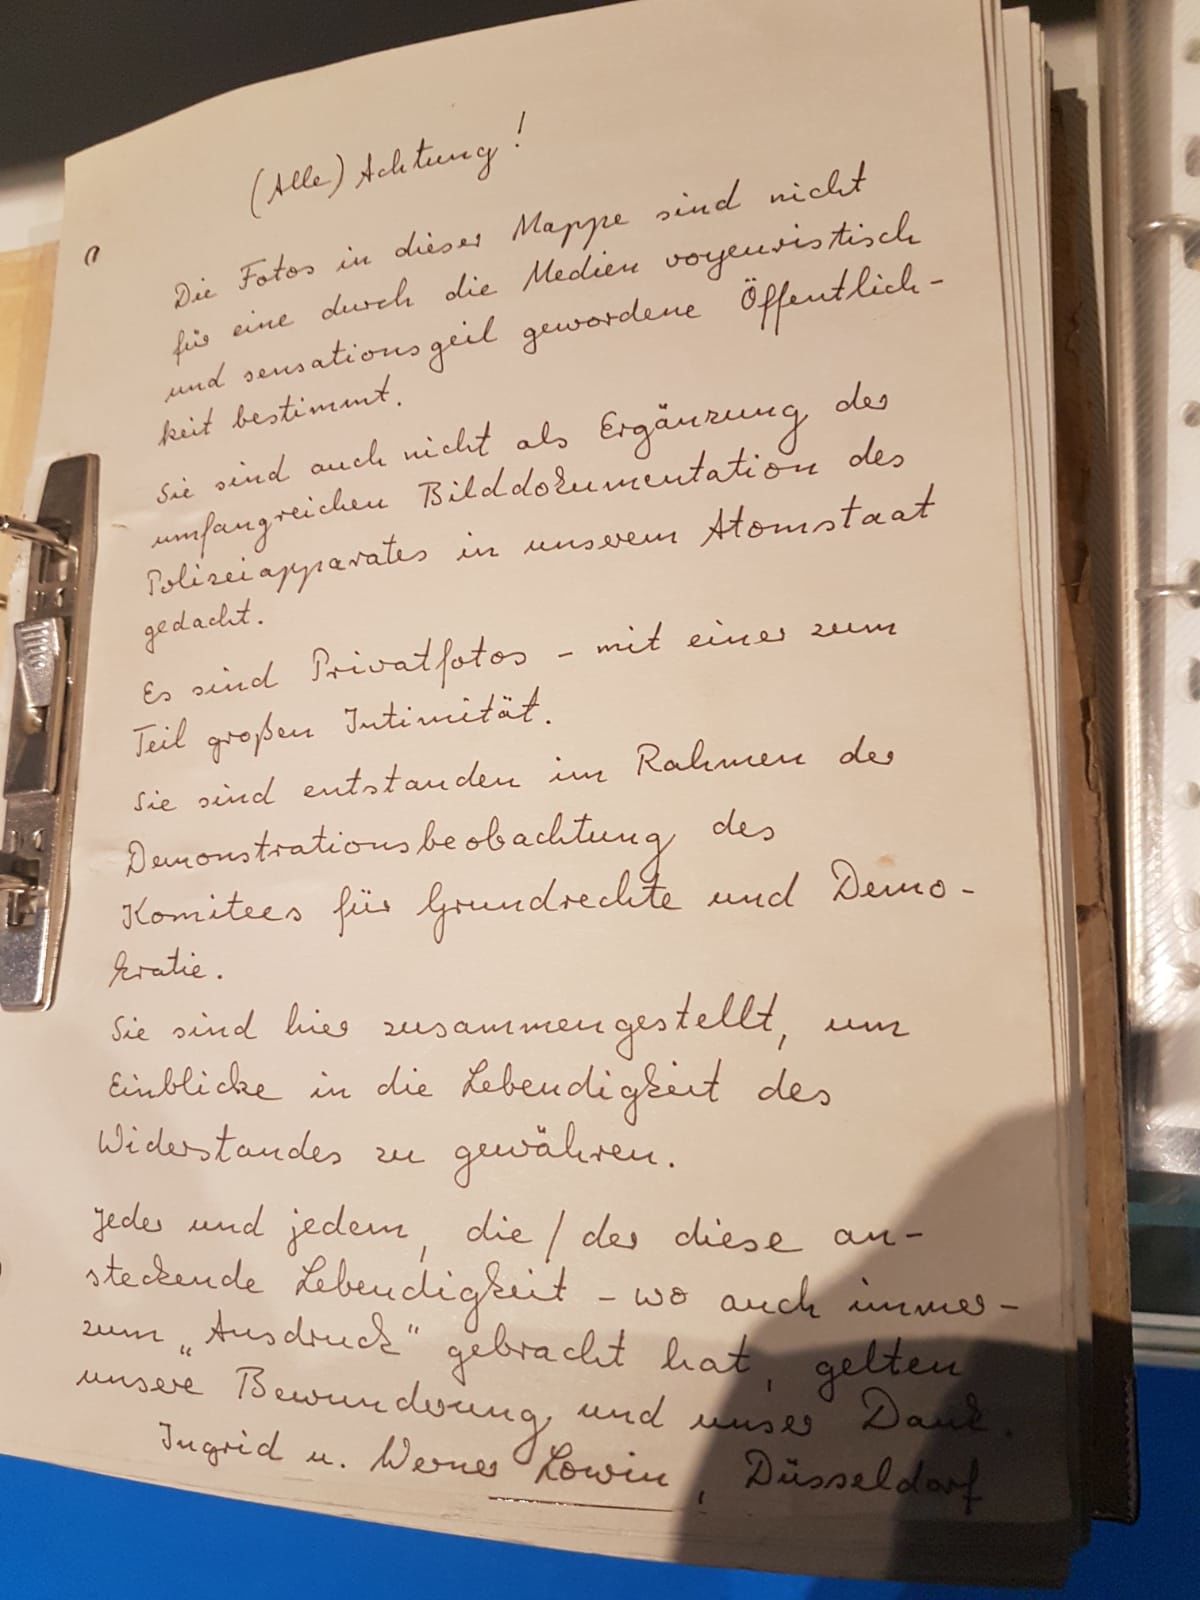 (Alle) Achtung!
Die Fotos in dieser Mappe sind nicht
für eine durch die Medien voyeuristisch
und sensationsgeil gewordene Öffentlich-
keit bestimmt.
Sie sind auch nicht als Ergänzung der
umfangreichen Bilddokumentation des
Polizeiapparates in unserem Atomstaat
gedacht.
Es sind Privatfotos – mit einer zum
Teil großen Intimität.
Sie sind entstanden im Rahmen der
Demonstrationsbeobachtung des
Komitees für Grundrechte und Demo-
kratie.
Sie sind hier zusammengestellt, um
Einblicke in die Lebendigkeit des
Widerstandes zu gewähren.
Jeder und jedem, die / der diese an-
steckende Lebendigkeit – wo auch immer –
zum „Ausdruck" gebracht hat, gelten
unsere Bewunderung und unser Dank.
Ingrid u. Werner Lowin, Düsseldorf